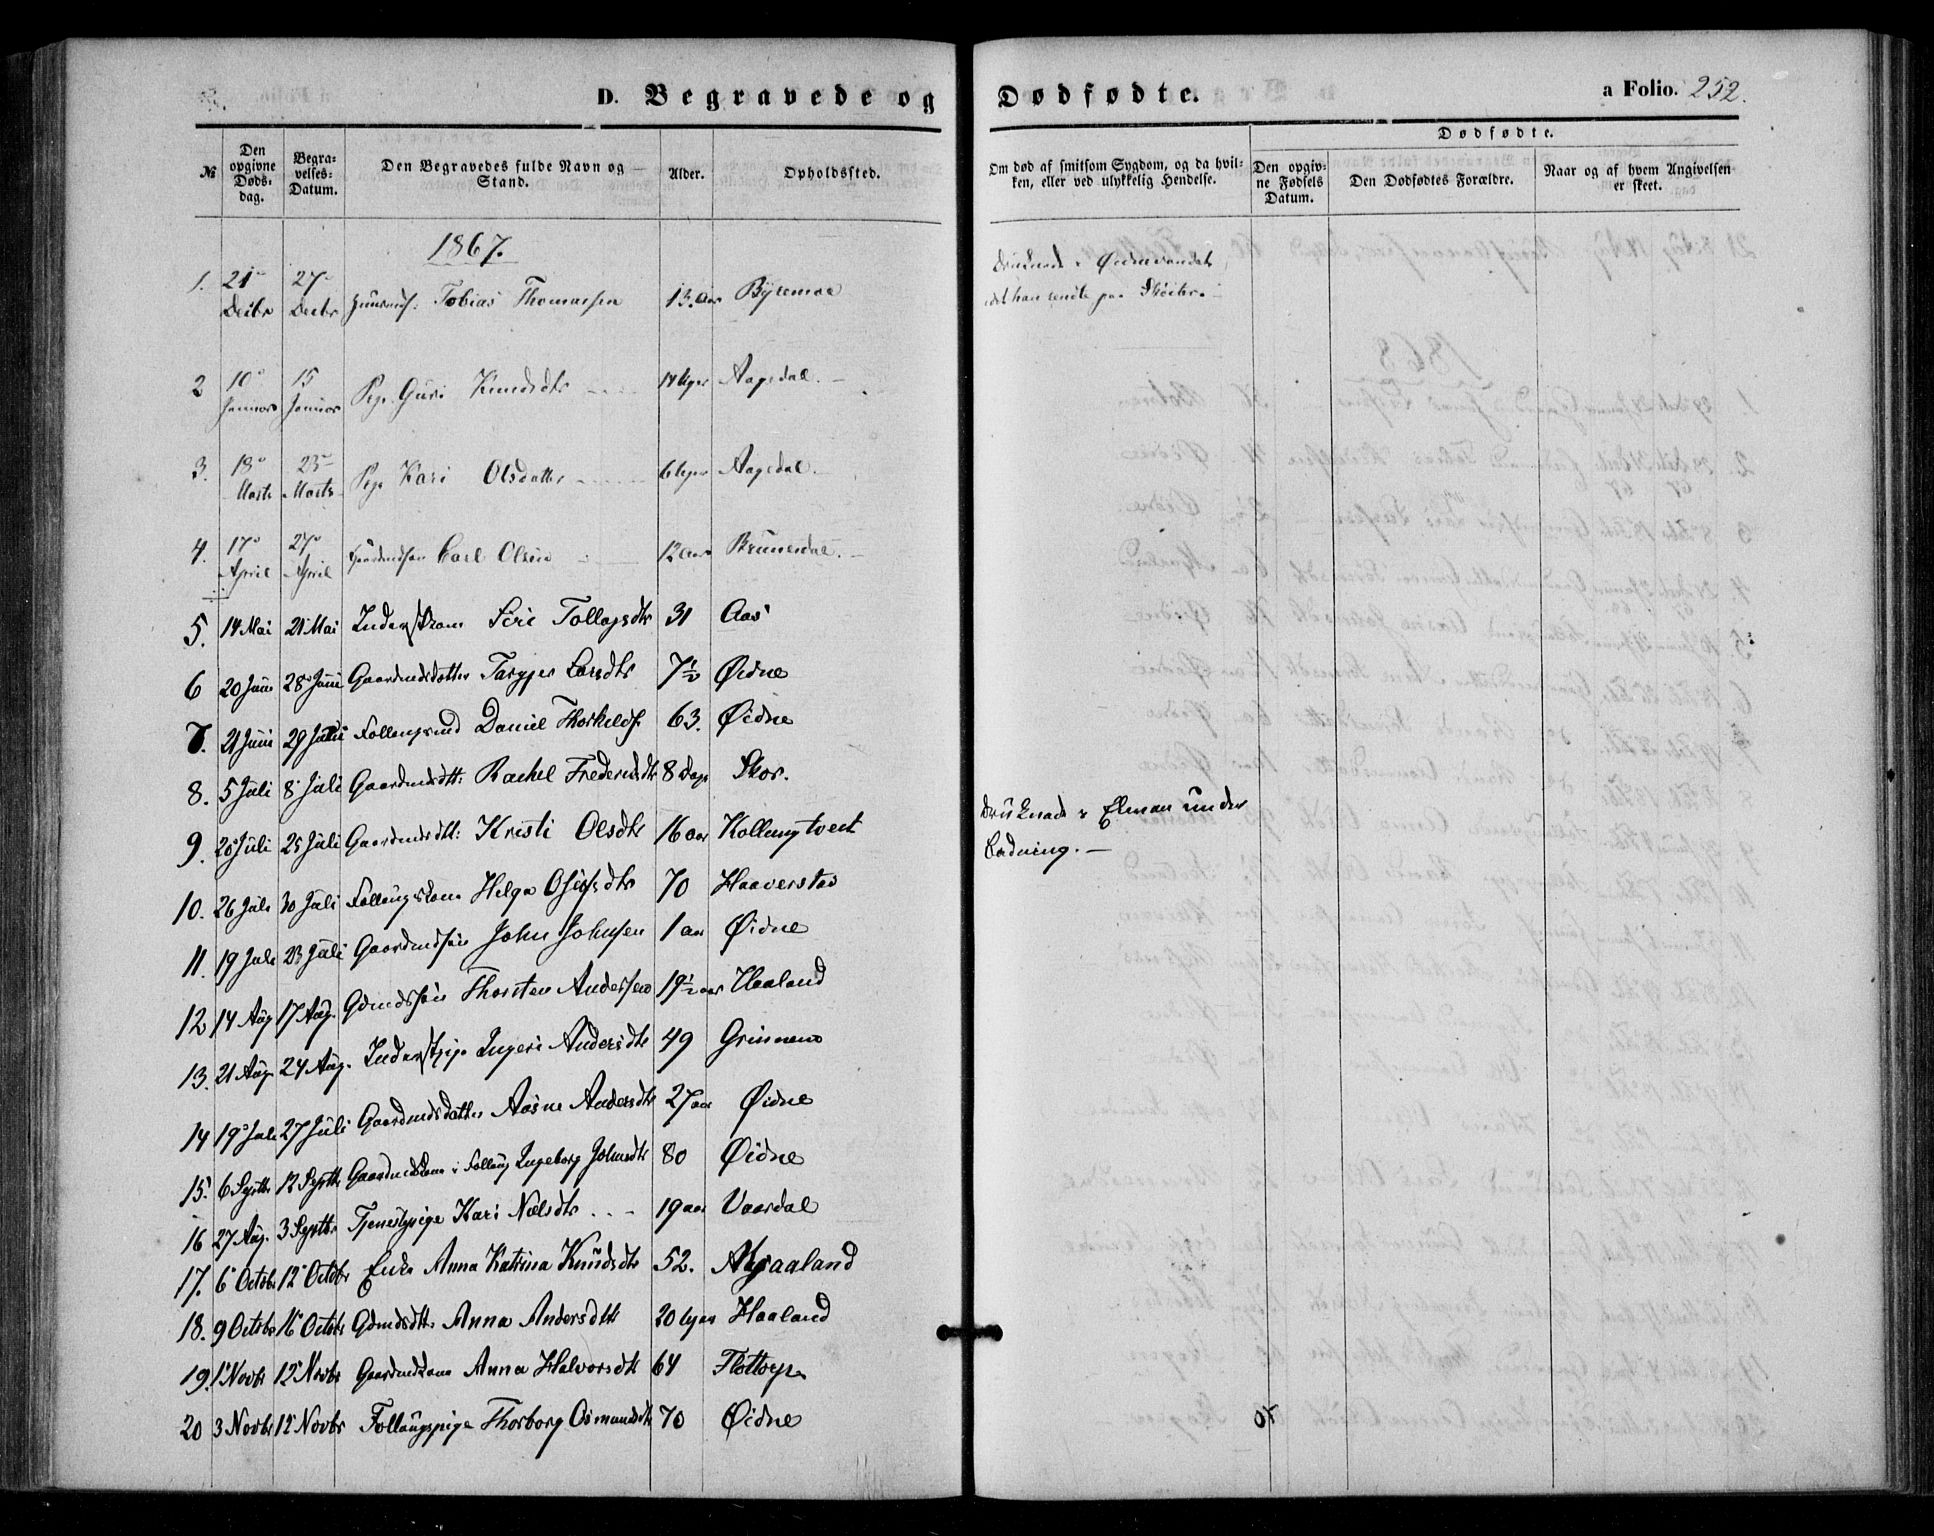 D. Begravede og Dødfødte. a Folio. 252.
№ Den opgivne Døds-dag. Begra-velses-Datum. Den Begravedes fulde Navn og Stand. Alder. Opholdssted. Om død af smitsom Sygdom, og da hvil-ken, eller ved ulykkelig Hendelse. Dødfødte. Den opgiv-ne Fødsels Datum. Den Dødfødtes Forældre. Naar og af hvem Angivelsen er skeet.
1867.
1. 21 Decbr 27 Decbr Tobias Thomassen 13 Aar Byremoe
han rendte paa Skøiter.
2 10 Januar 15 Januar Pige Guri Knudsdtr 14 Uger Aagedal.
3. 18 Marts 23 Marts Pige Kari Olsdatter 6 Uger Aagedal.
4. 17 April 27 April Gaardmdsøn Carl Olsen 12 Aar Brunesdal.
5. 14 Mai 21 Mai Inderstkone Siri Tollagsdtr 31 Aas
6 20 Juni 28 Juni Gaardmdsdatter Targjer Larsdtr 7½ Øidne
7. 21 Juni 29 Juni Daniel Thorkelds. 63. Øidne
8. 5 Juli 8 Juli Gaardmdsdtt: Rachel Frederiksdtr 8 Dage Skor.
9. 20 Juli 25 Juli Gaardmdsdtt: Kristi Olsdtr 16 aar Kollungtveit Druknede i Elven under
Badning.
10. 26 Juli 30 Juli Follaugskone Helga 70 Haaverstad
11. 19 Juli 23 Juli Gaardmdsøn John Johnsen 1 aar Øidne
12 14 Aug 17 Aug. Gdmdssøn Thorsten Andersen 19½ aar Haaland
13. 21 Aug. 24 Aug. Inderstpige Ingeri Andersdtr 49 Grinnem
14 19 Juli 27 Juli Gaardmdsdatter Aasne Andersdtr 27 aar Øidne
15. 6 Septbr 12 Septbr Gaardmdskone i Follaug Ingeborg Johnsdtr 80 Øidne
16 27 Aug. 3 Septbr Tjenestpige Kari Nielsdtr 19 aar Vaardal
17. 6 Octbr 12 Octbr Enke Anna Katrina Knudsdtr 52.
18. 9 Octbr 16 Octbr Gdmdsdtt: Anna Andersdtr 20 Uger Haaland
19. 1 Novbr 12 Novbr Gaardmdkone Anna Halvorsdtr 64 Flottorp
20 3 Novbr 12 Novbr Follaugspige Thorborg Osmundsdtr 70 Øidne